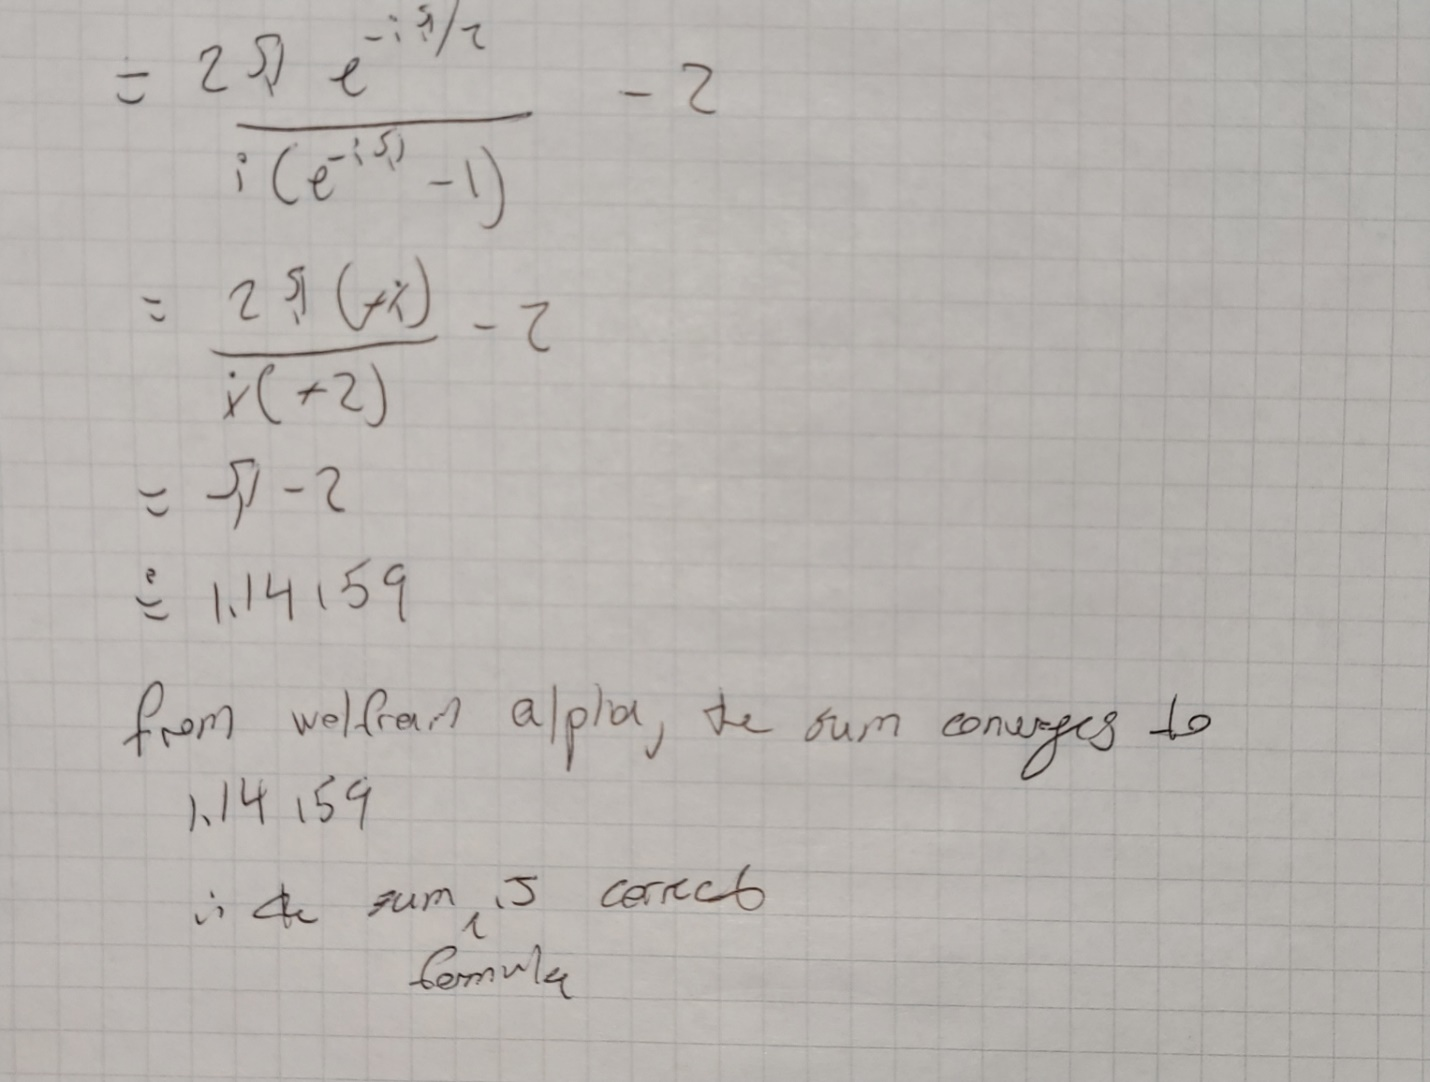 = 2π e^{-iπ/2} / i(e^{-iπ} - 1) - 2
= 2π (+i) / i(+2) - 2
= π - 2
≐ 1.14159
from wolfram alpha, the sum converges to
1.14159
∴ the sum formula is correct